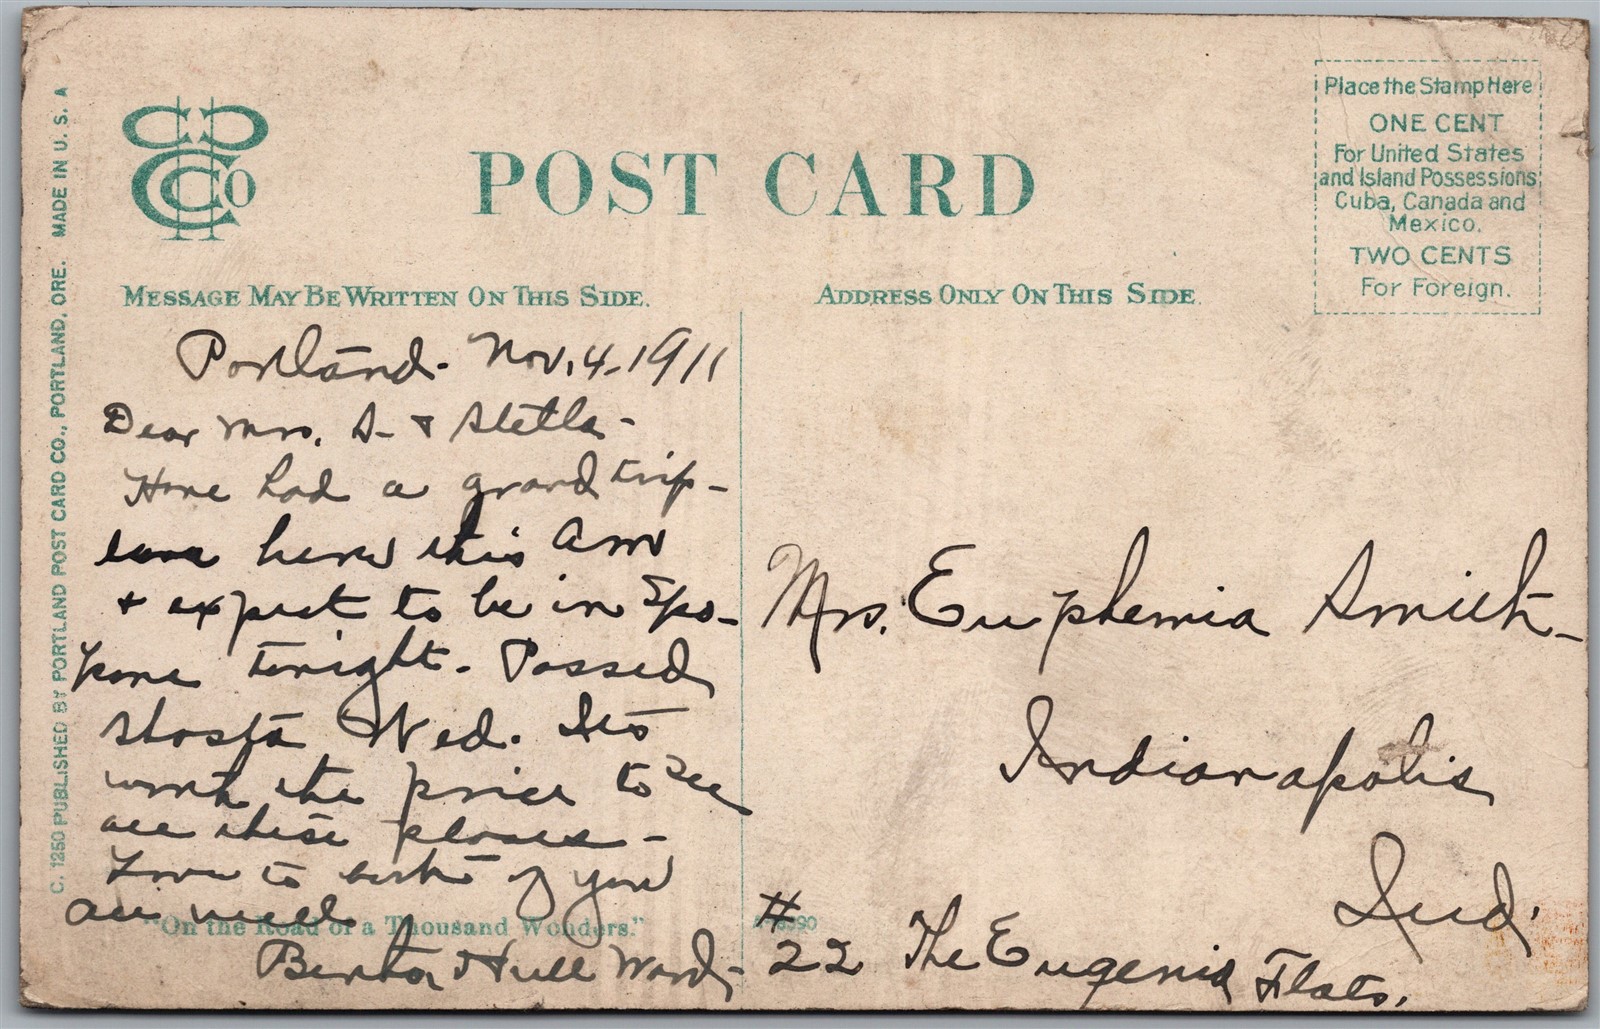 C. 1250 PUBLISHED BY PORTLAND POST CARD CO., PORTLAND, ORE. MADE IN U. S. A
POST CARD
Place the Stamp Here
ONE CENT
For United States
and Island Possessions,
Cuba, Canada and
Mexico.
TWO CENTS
For Foreign.
MESSAGE MAY BE WRITTEN ON THIS SIDE.
ADDRESS ONLY ON THIS SIDE.
Portland - Nov. 4 - 1911
Dear Mrs. S - & Stella -
Have had a grand trip -
here this am
& expect to be in Spo-
kane tonight. Passed
Shasta Wed. Its
worth the price to see
all these places -
Love to both of you
all well
"On the Road of a Thousand Wonders."
Hull Ward -
Mrs. Euphemia Smith -
Indianapolis
Ind.
# 22 The Eugenia Flats.